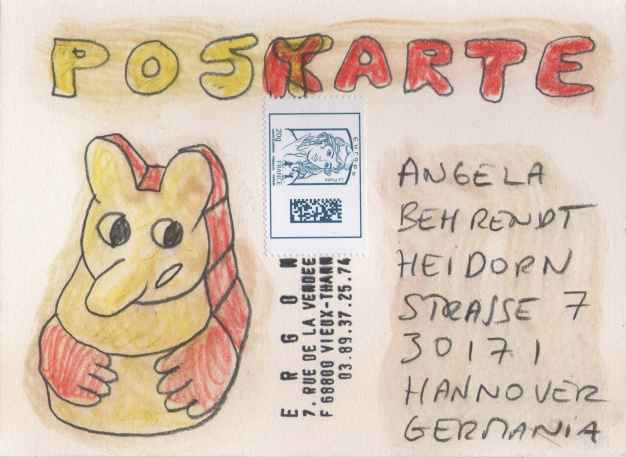 POSTKARTE
EUROPE
La Poste
20g
FRANCE
ERGON
7. RUE DE LA VENDEE
F 68800 VIEUX-THANN
03.89.37.25.74
ANGELA
BEHRENDT
HEIDORN
STRASSE 7
30171
HANNOVER
GERMANIA